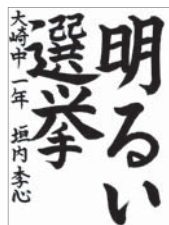 明るい
選挙
大崎中一年 垣内李心